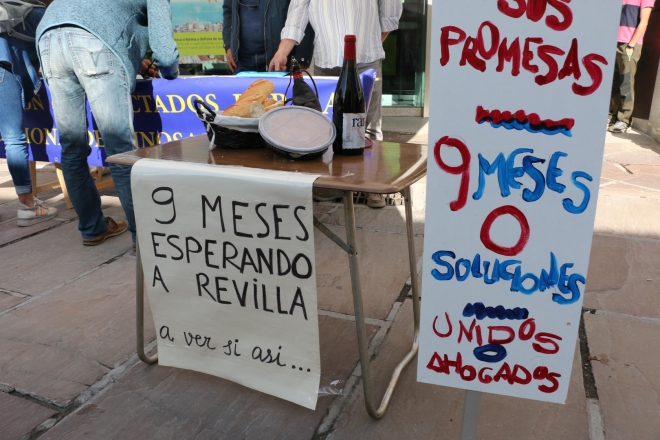 CTADOS
9 MESES
ESPERANDO
A REVILLA
a ver si asi...
SUS
PROMESAS
9 MESES
0
SOLUCIONES
UNIDOS
O
AHOGADOS